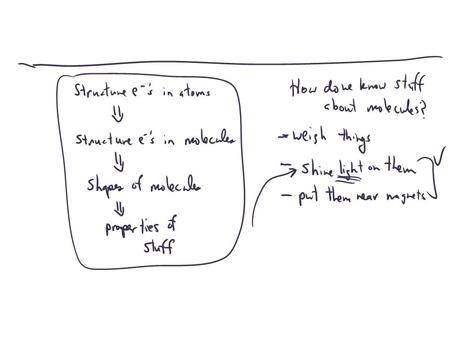 Structure e⁻'s in atoms
⇓
Structure e⁻'s in molecules
⇓
Shapes of molecules
⇓
properties of
stuff
How do we know stuff
about molecules?
- weigh things
- shine light on them
- put them near magnets